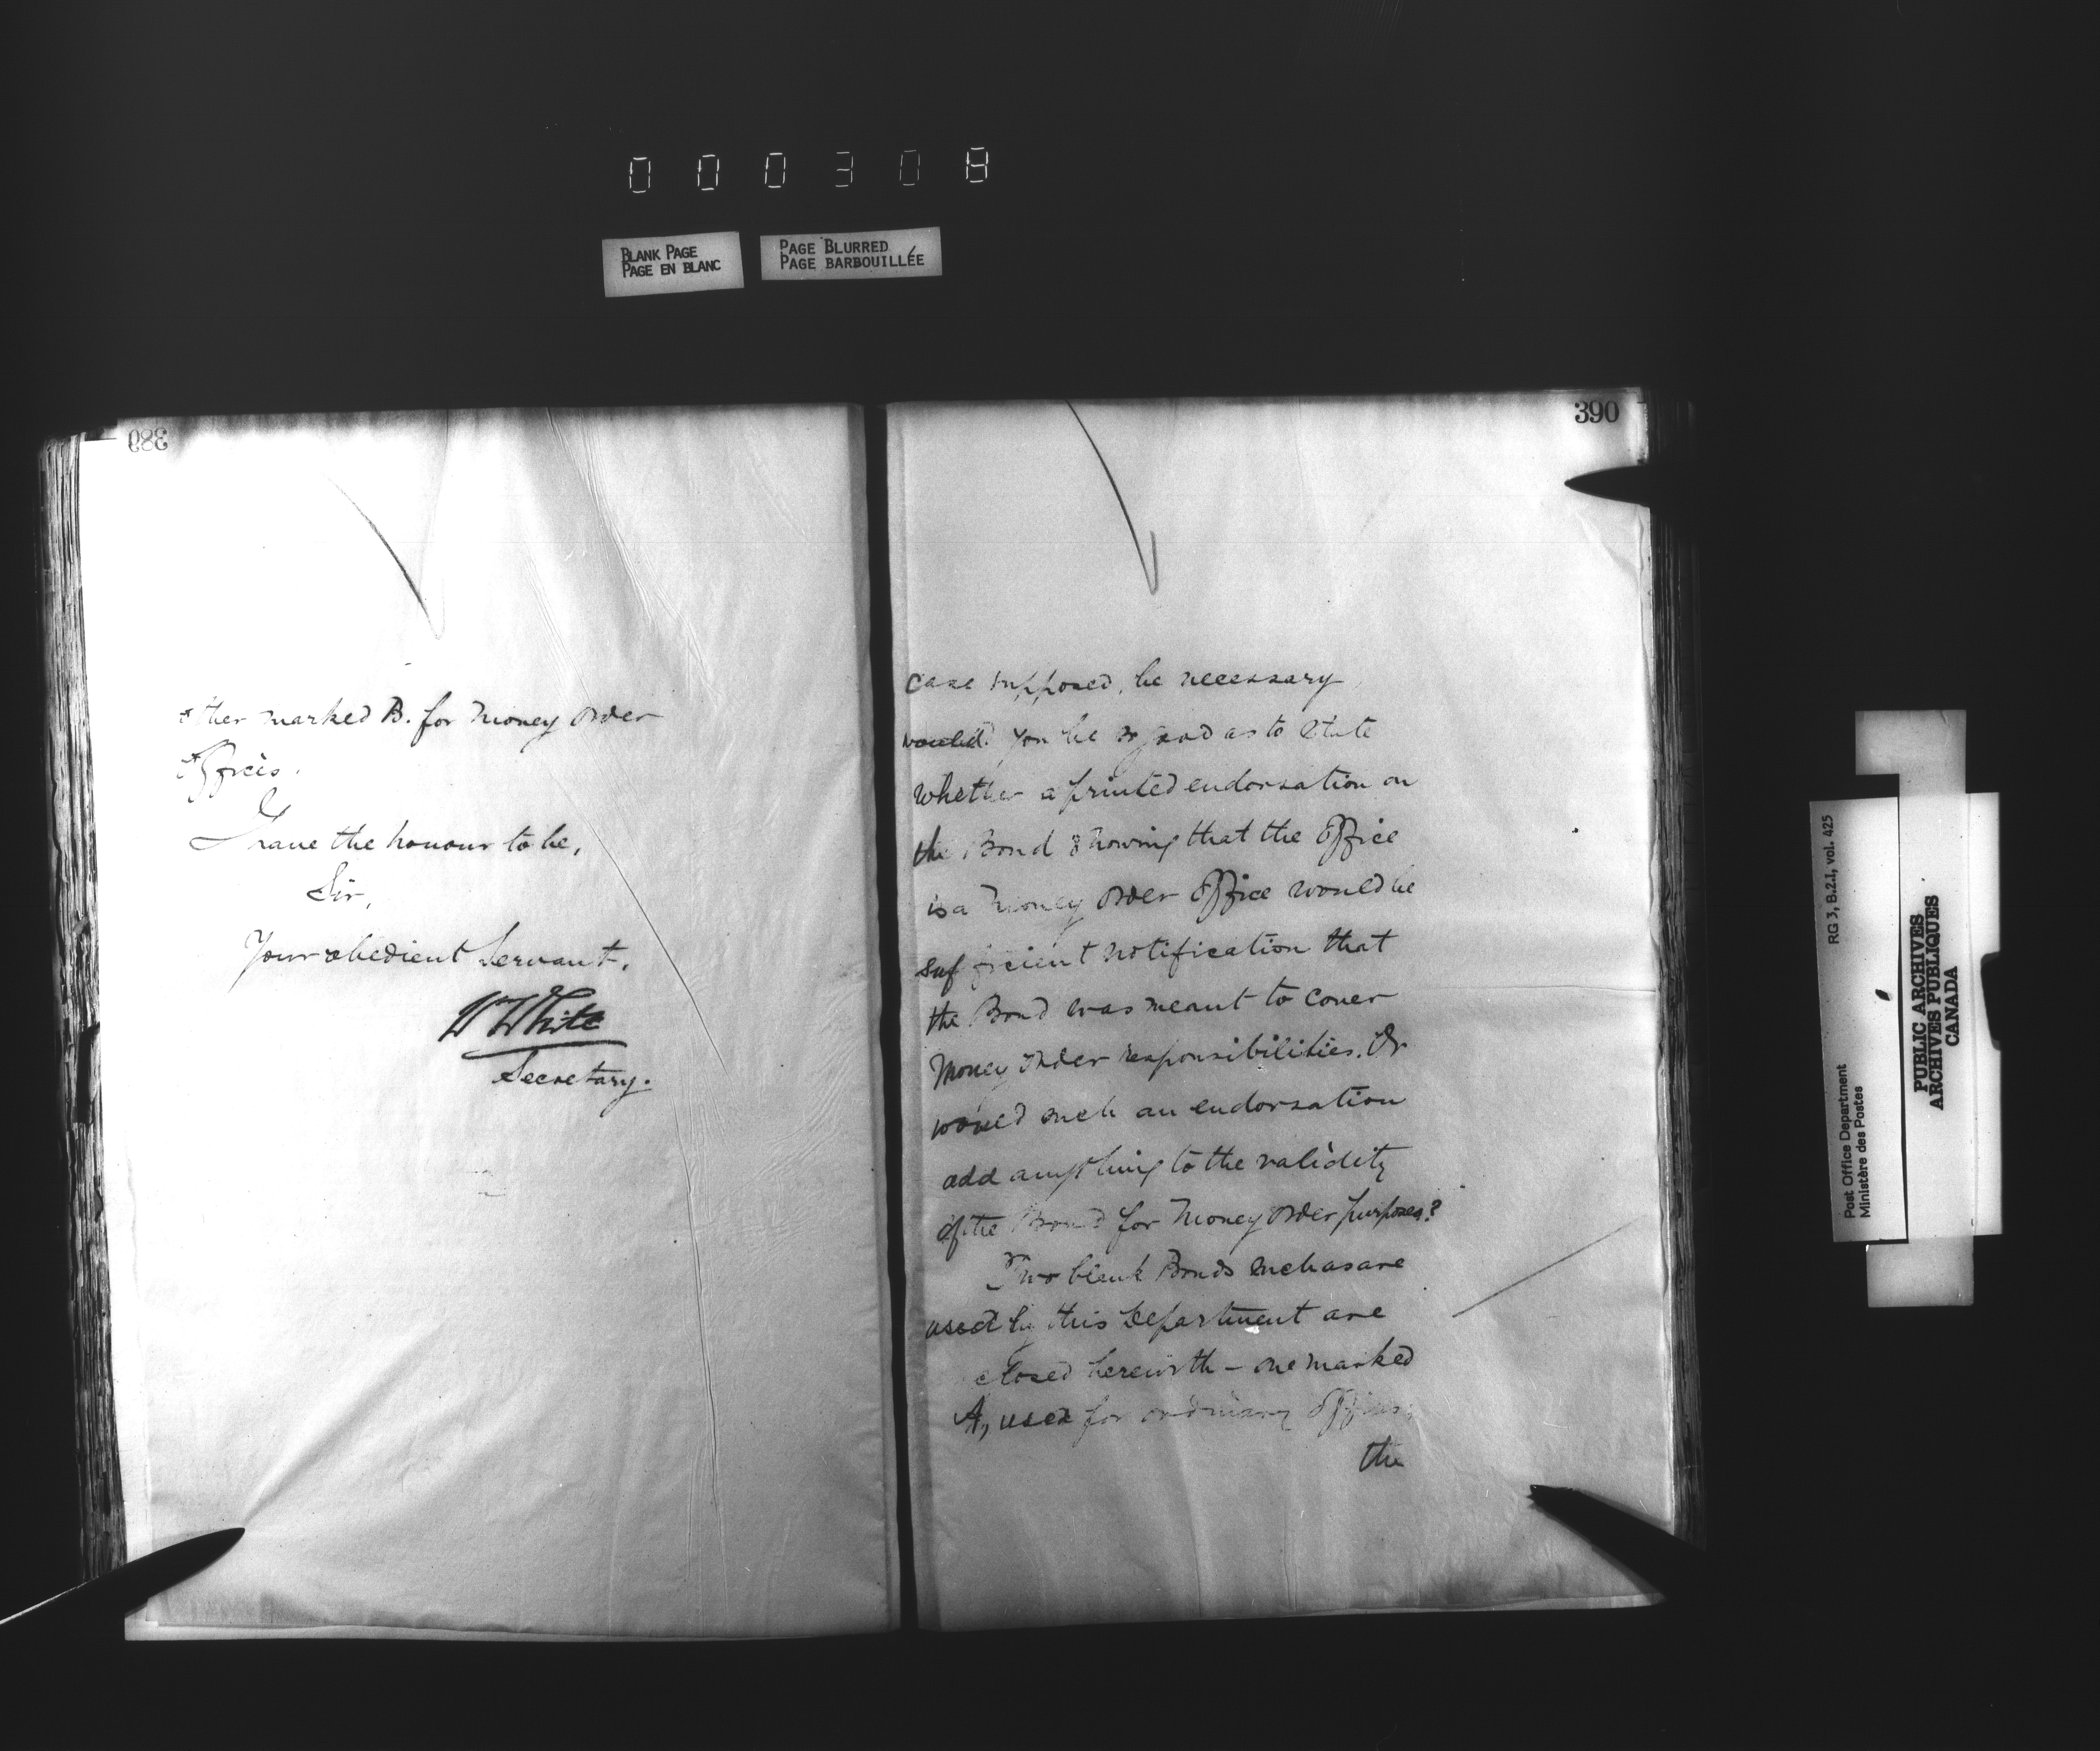 000308
BLANK PAGE
PAGE EN BLANC
PAGE BLURRED
PAGE BARBOUILLÉE
389
other marked B. for Money Order
Offices.
I have the honour to be,
Sir,
Your obedient Servant,
Wm White
Secretary.
390
case supposed, be necessary,
would you be so good as to state
whether a printed endorsation on
the Bond showing that the Office
is a Money Order Office would be
sufficient notification that
the Bond was meant to cover
Money Order responsibilities. Or
would such an endorsation
add anything to the validity
of the Bond for Money Order purposes?
Two blank Bonds such as are
used by this Department are
closed herewith - one marked
A, used for ordinary Offices,
the
Post Office Department
Ministère des Postes
RG 3, B.2.1, vol. 425
PUBLIC ARCHIVES
ARCHIVES PUBLIQUES
CANADA